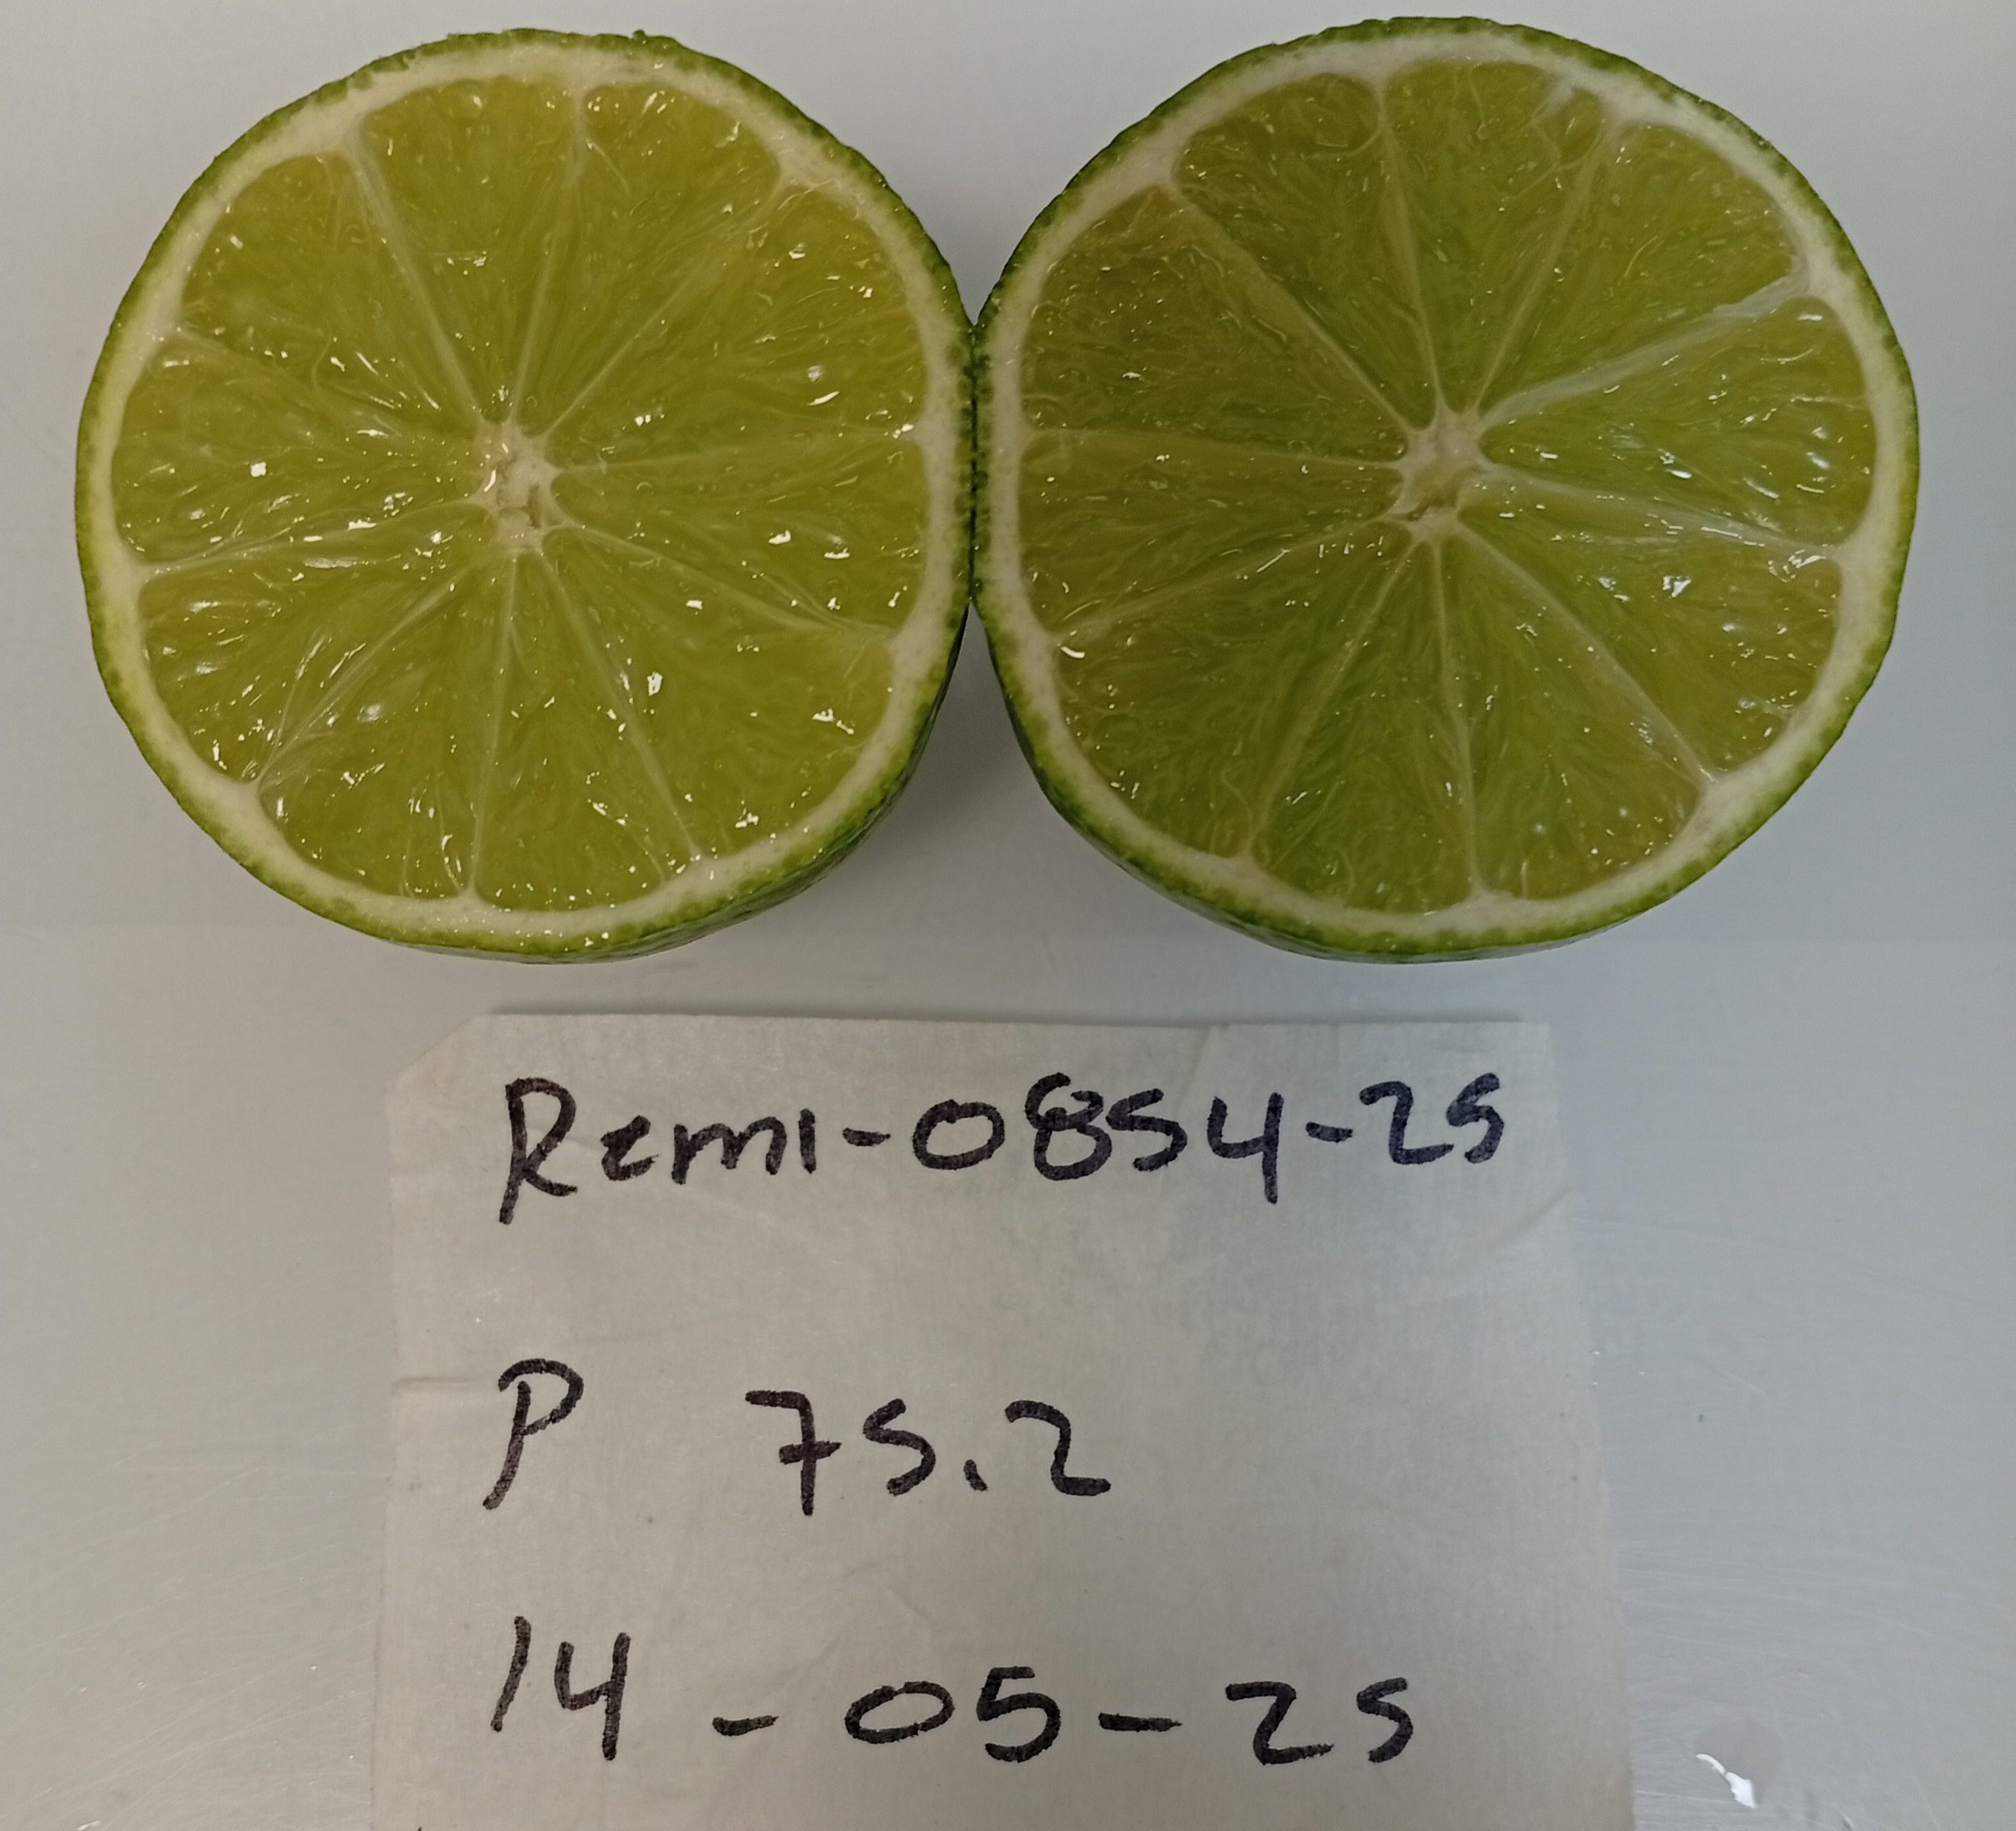 Remi-0854-25
P 75.2
14-05-25